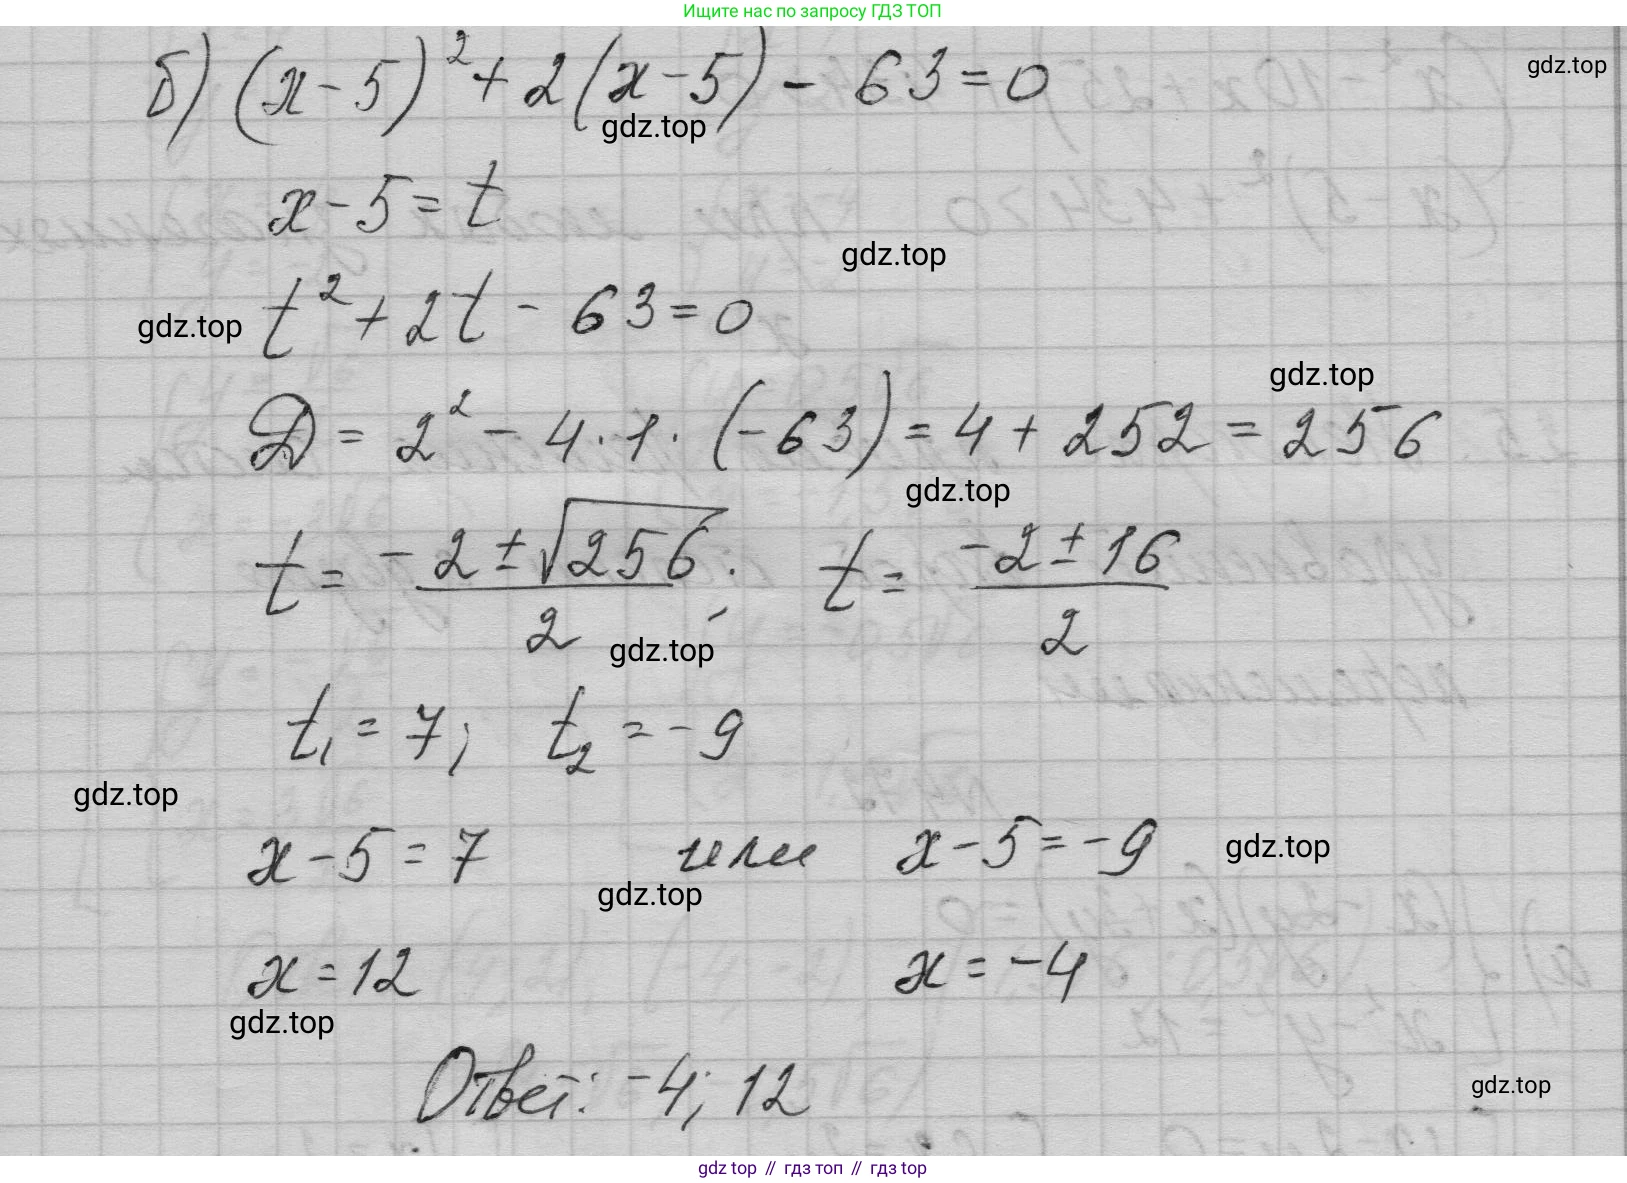 Ищите нас по запросу ГДЗ ТОП
б) (x-5)² + 2(x-5) - 63 = 0
gdz.top
gdz.top
x-5 = t
gdz.top
t² + 2t - 63 = 0
gdz.top
gdz.top
Д = 2² - 4·1·(-63) = 4 + 252 = 256
gdz.top
t = (-2 ± √256)/2; t = (-2 ± 16)/2
gdz.top
t₁ = 7; t₂ = -9
gdz.top
x-5 = 7 или x-5 = -9
gdz.top
gdz.top
x = 12 x = -4
gdz.top
Ответ: -4; 12
gdz.top
gdz top // гдз топ // гдз top